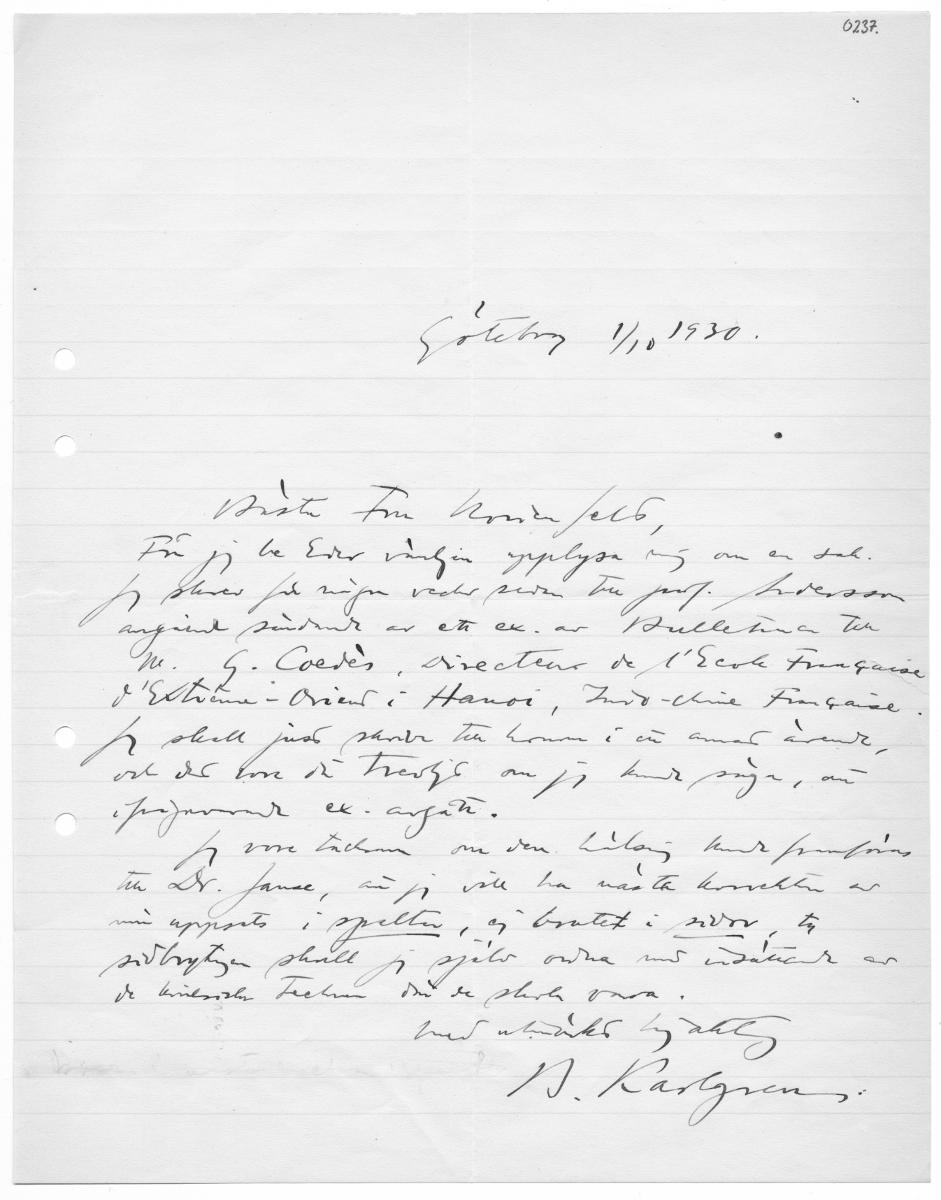 0237.
Göteborg 1/10 1930.
Bästa Fru Nordenfelt,
Får jag be Eder vänligen upplysa mig om en sak.
Jag skrev för några veckor sedan till prof. Andersson
angående sändande av ett ex. av Bulletinen till
M. G. Coedès, Directeur de l'Ecole Française
d'Extrême-Orient i Hanoi, Indo-chine Française.
Jag skall just skriva till honom i ett annat ärende,
och det vore då trevligt om jag kunde säga, att
ifrågavarande ex. avgått.
Jag vore tacksam om den hälsning kunde framföras
till Dr. Janse, att jag vill ha nästa korrektur av
min uppsats i spalter, ej brutet i sidor, ty
sidbrytningen skall jag själv ordna med insättande av
de kinesiska tecken där de skola vara.
Med utmärkt högaktning
B. Karlgren.